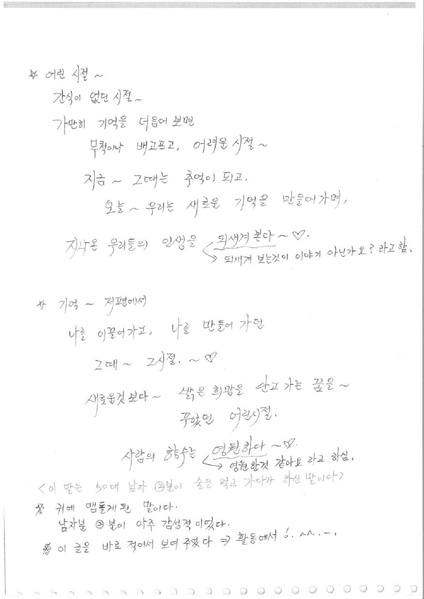 ☆ 어린 시절~
간식이 없던 시절~
가만히 기억을 더듬어 보면
무척이나 배고프고, 어려운 시절~
지금~ 그때는 추억이 되고,
오늘~ 우리는 새로운 기억을 만들어가며,
지나온 우리들의 인생을 되새겨 본다~ ♡.
→ 되새겨 보는것이 이야기 아닌가요? 라고 함.
☆ 기억~ 저편에서
나를 이끌어가고, 나를 만들어 가던
그때~ 그시절.~♡
새로운것 보다~ 밝은 희망을 안고 가는 꿈을~
꾸었던 어린시절.
사람의 향수는 영원하다~♡.
→ 영원한것 같아요 라고 하심.
<이 말은 50대 남자 분이 술을 먹고 가다가 하신 말이다>
☆ 귀에 맴돌게 된 말이다.
남자분 분이 아주 감성적이었다.
※ 이 글을 바로 적어서 보여 주었다 ⇒ 활동에서 !. ^^. ~.